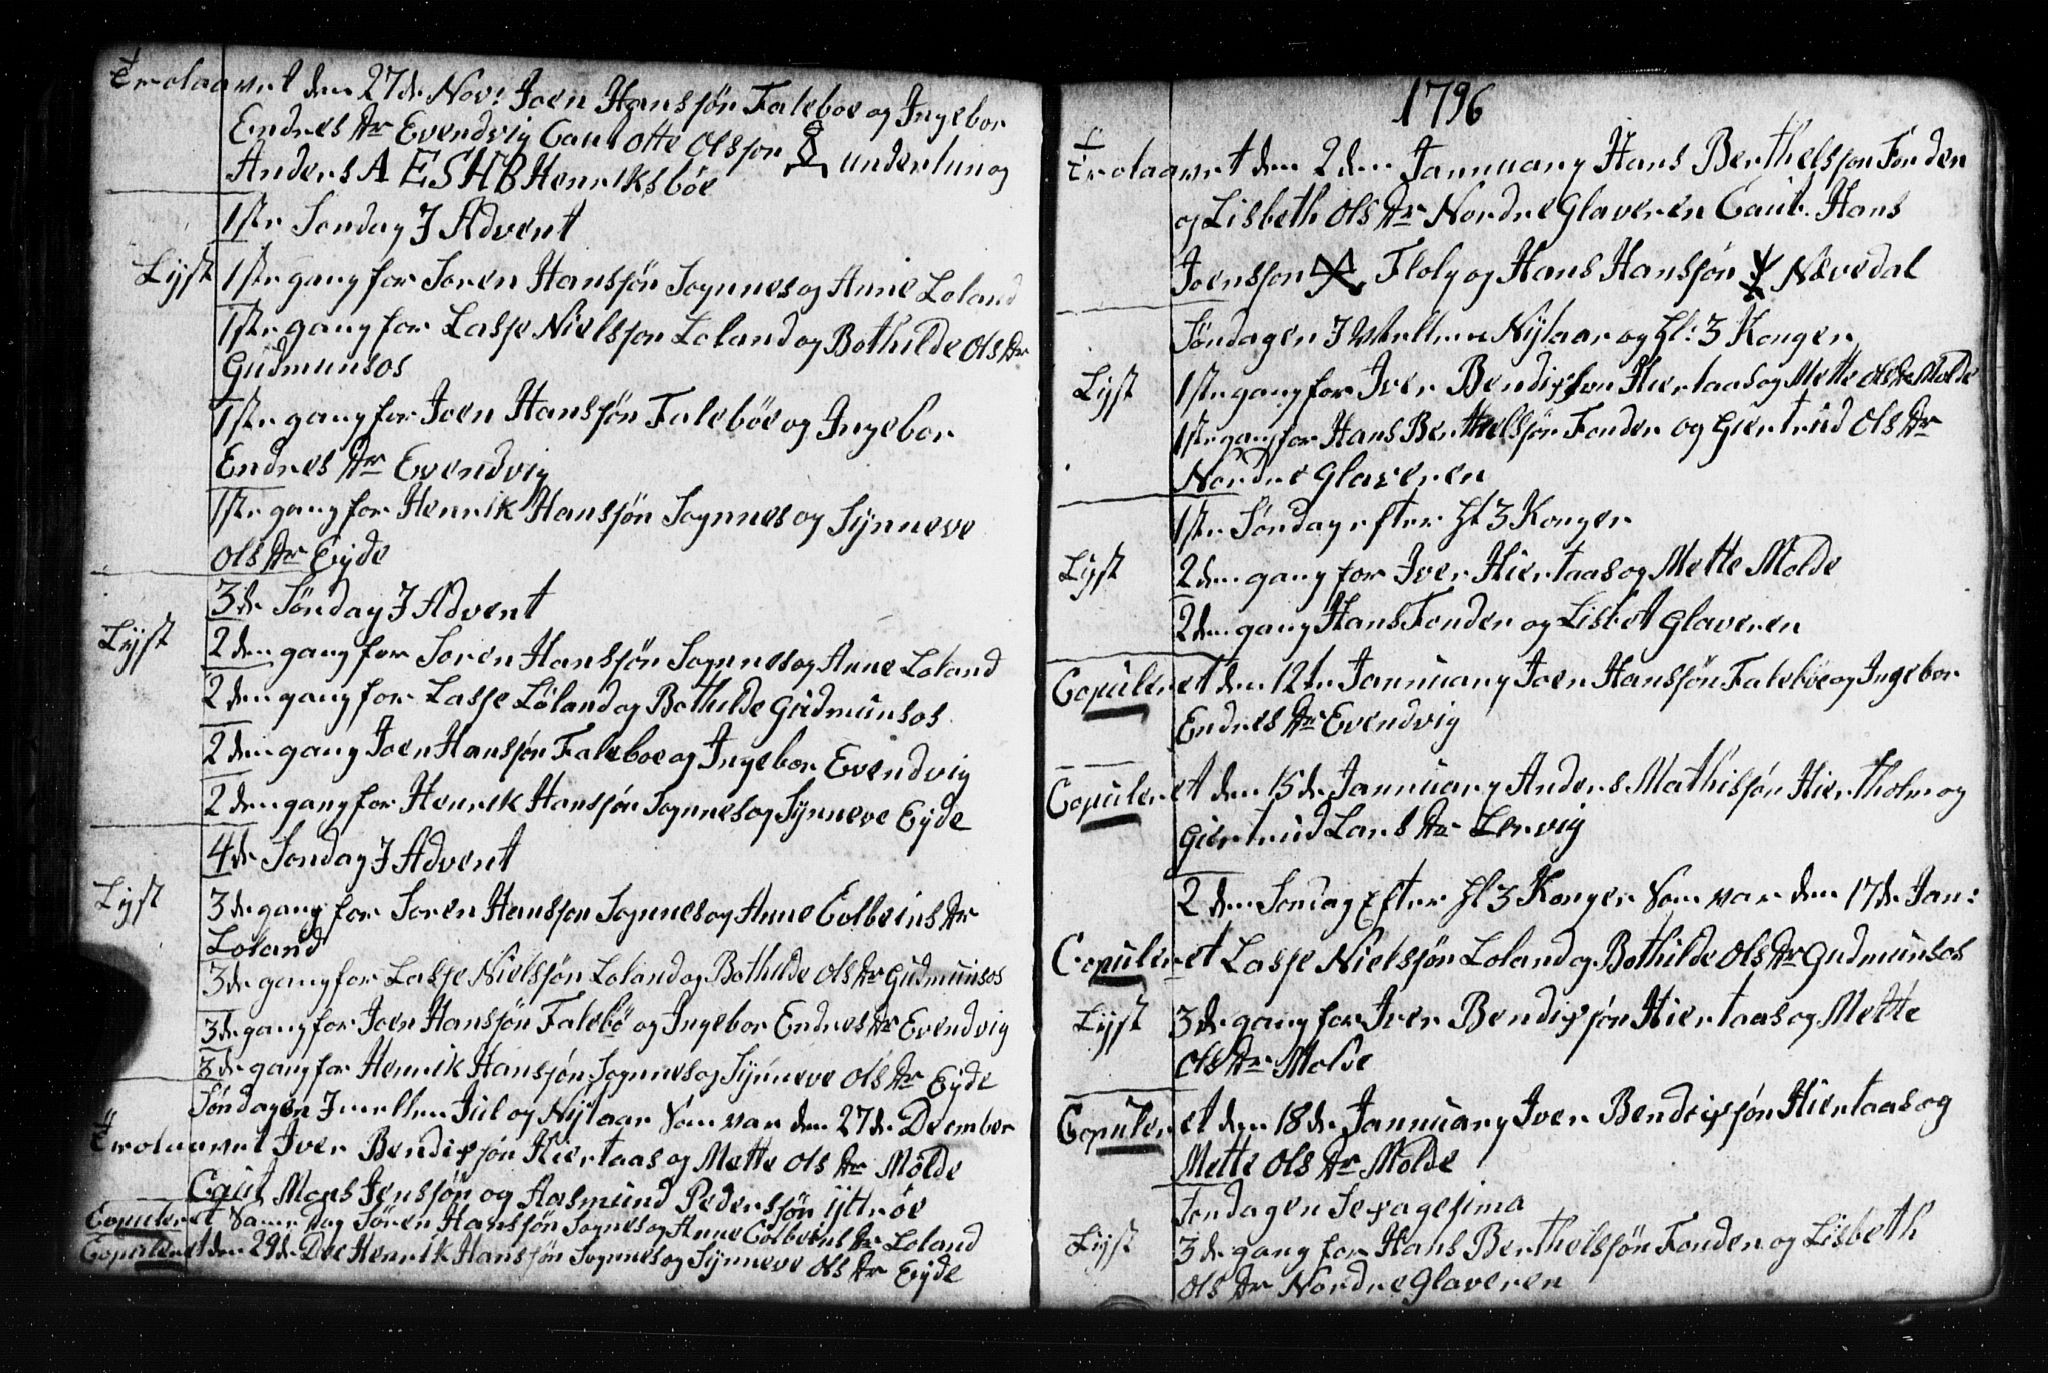 Trolaavet den 27de Nov: Joen Hansjøn Faleboe og Ingebor
Endres dr Evendvig Caut Otte Olsjon underlun og
Anders A E S H B Henriksbøe
1ste Sondag J Advent
Lyst 1ste gang for Soren Hansjøn Sognnes og Anne Loland
1ste gang for Lasse Nielsjon Loland og Bothilde Ols dr
Gudmunsos
1ste gang for Joen Hansjøn Falebøe og Ingebor
Endres dr Evendvig
1ste gang for Henrik Hansjøn Sognnes og Synneve
Ols dr Eyde
3de Søndag J Advent
Lyst 2den gang for Soren Hansjøn Sognnes og Anne Loland
2den gang for Lasse Løland og Bothilde Gudmunsos
2den gang Joen Hansjøn Faleboe og Ingebor Evendvig
2den gang for Henrik Hansjøn Sognnes og Synneve Eyde
4de Sondag J Advent
Lyst 3de gang for Soren Hansjon Sognnes og Anne Colbeins dr
Loland
3de gang for Lasse Nielsjøn Loland og Bothilde Ols dr Gudmunsos
3de gang for Joen Hansjøn Falebø og Ingebor Endres dr Evendvig
3de gang for Henrik Hansjøn Sognnes og Synneve Ols dr Eyde
Søndagen Jmellem Jul og Nytaar Som var den 27de December
Trolaavet Iver Bendixjøn Hiertaas og Mette Ols dr Molde
Caut Mons Jensjøn og Aasmund Pedersjøn ytterøe
Copuleret Samedag Søren Hansjøn Sognes og Anne Colbeins dr Loland
Copuleret den 29de Dec Henrik Hansjøn Sognnes og Synneve Ols dr Eyde
1796
Trolaavet den 2den Jannuary Hans Berthelsjon Fonden
og Lisbeth Ols dr Nordre Glaveren Caut. Hans
Joensjon Floly og Hans Hansjøn Nævedal
Søndagen J Mellem Nytaar og Hl: 3 Konger
Lyst 1ste gang for Iver Bendixson Hiertaas og Mette Ols dr Molde
1ste gang for Hans Berthelsjøn Fonden og Giertrud Ols dr
Nordre Glaveren
1ste Søndag efter Hl 3 Konger
Lyst 2den gang for Iver Hiertaas og Mette Molde
2den gang Hans Fonden og Lisbet Glaveren
Copuleret den 12te Jannuary Joen Hansjøn Falebøe og Ingebor
Endres dr Evendvig
Copuleret den 15de Jannuary Anders Mathisjøn Hiertholm og
Giertrud Lars dr Lervig
2den Sondag Efter Hl 3 Konger Som var den 17de Jan:
Copuleret Lasse Nielsjøn Loland og Bothilde Ols dr Gudmunsos
Lyst 3de gang for Iver Bendixjøn Hiertaas og Mette
Ols dr Molde
Copuleret den 18de Jannuary Iver Bendixjøn Hiertaas og
Mette Ols dr Molde
Søndagen Sexagesima
Lyst 3de gang for Hans Berthelsjøn Fonden og Lisbeth
Ols dr Nordre Glaveren